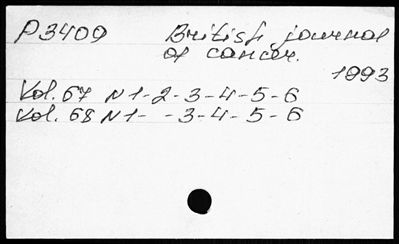 P3409 British journal
of cancer.
1993
Vol. 67 N 1-2-3-4-5-6
Vol. 68 N 1- -3-4-5-6